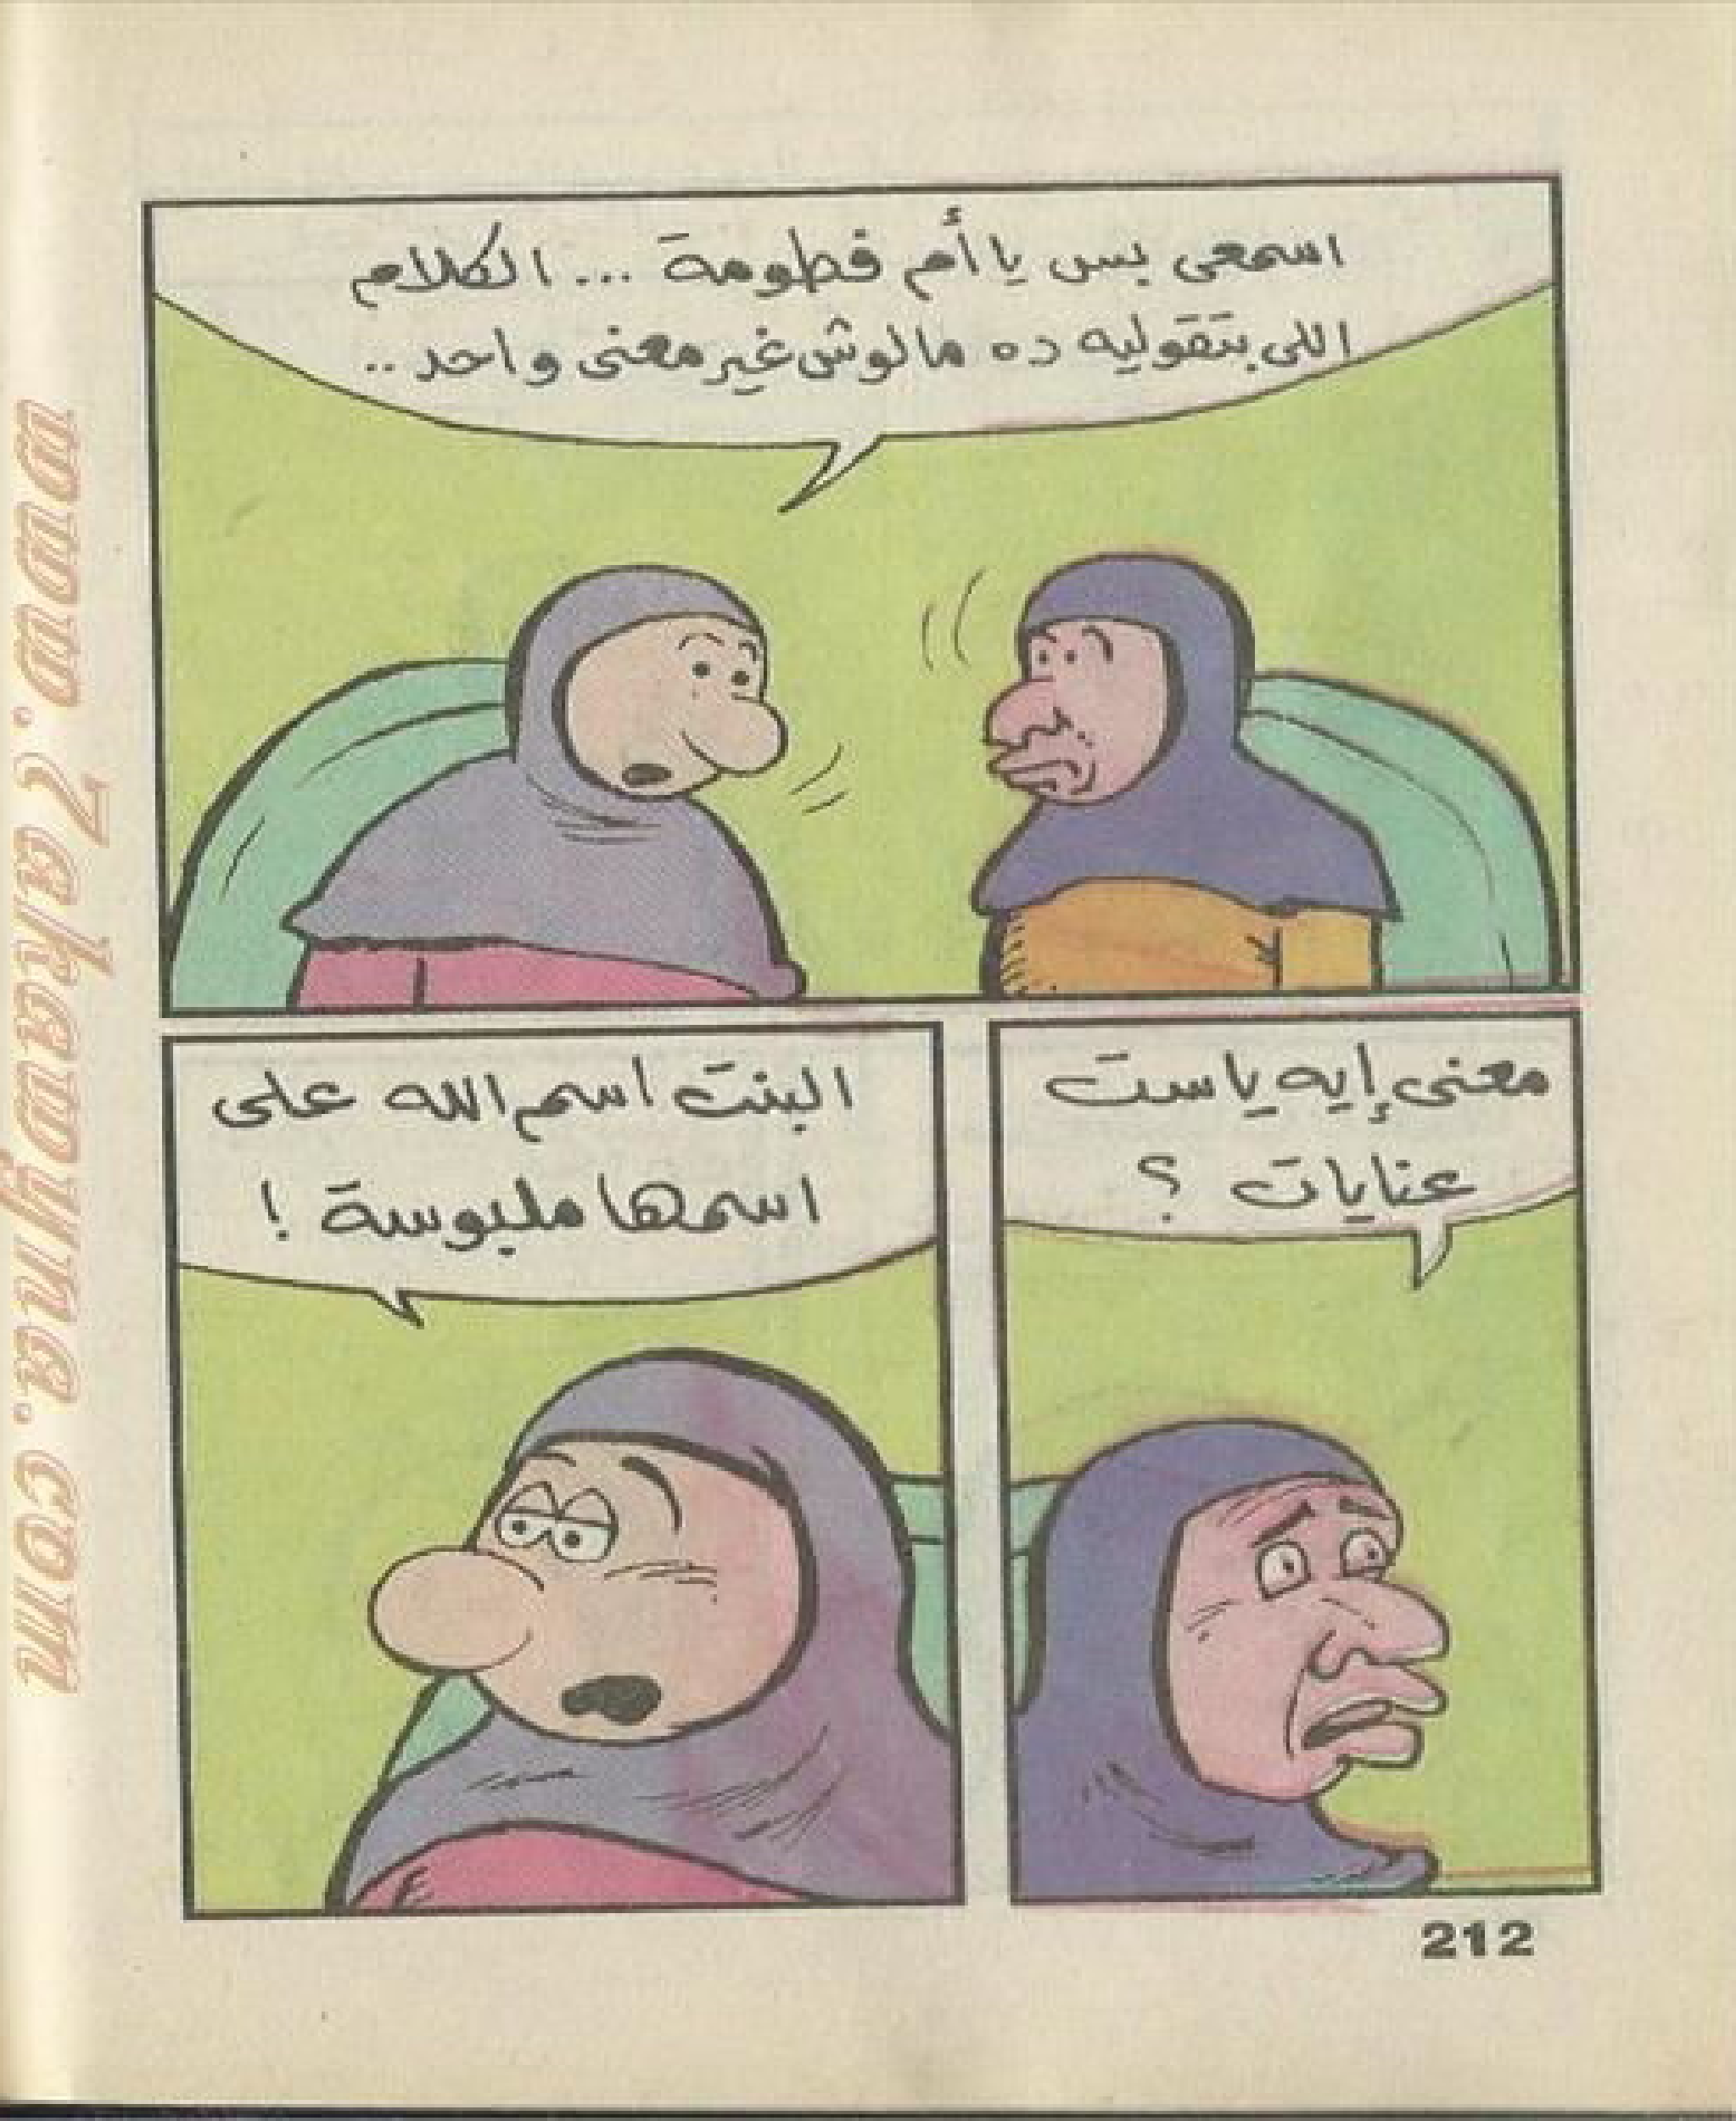 اسمعى بس يا أم فطومة ... الكلام
اللى بتقوليه ده مالوش غير معنى واحد ..
معنى إيه ياست
عنايات ؟
البنت اسم الله على
اسمها ملبوسة !
212
www.7akawyna.com